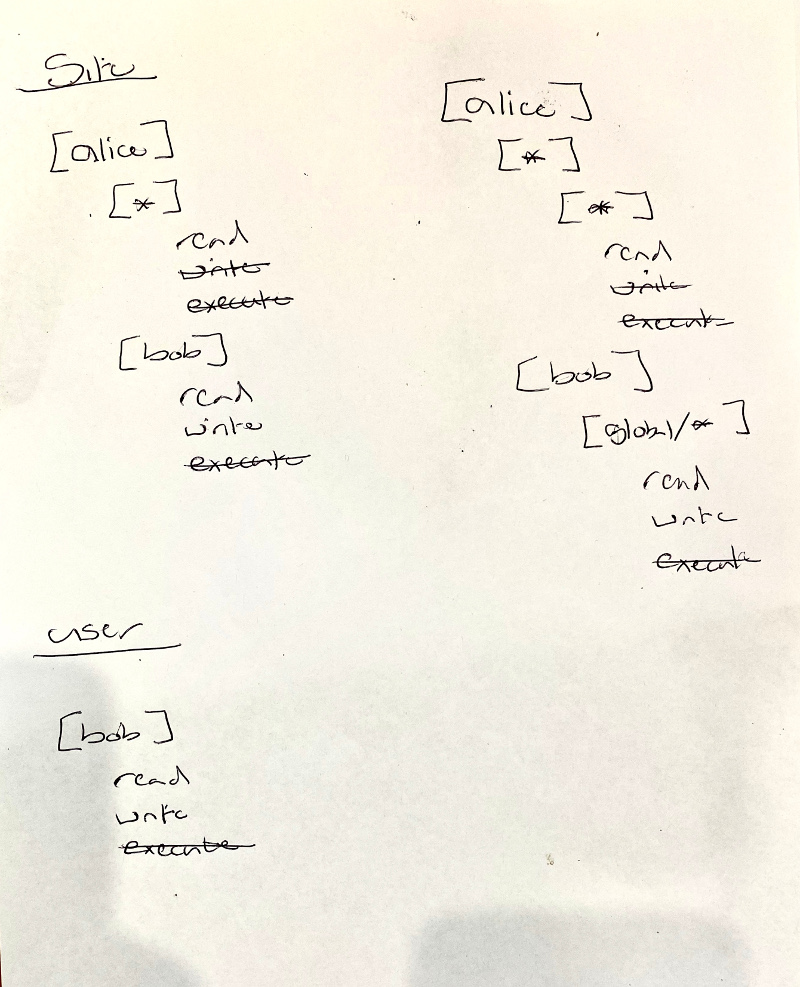 Site
[alice]
[*]
read
write
execute
[bob]
read
write
execute
[alice]
[*]
[*]
read
write
execute
[bob]
[global/*]
read
write
execute
user
[bob]
read
write
execute